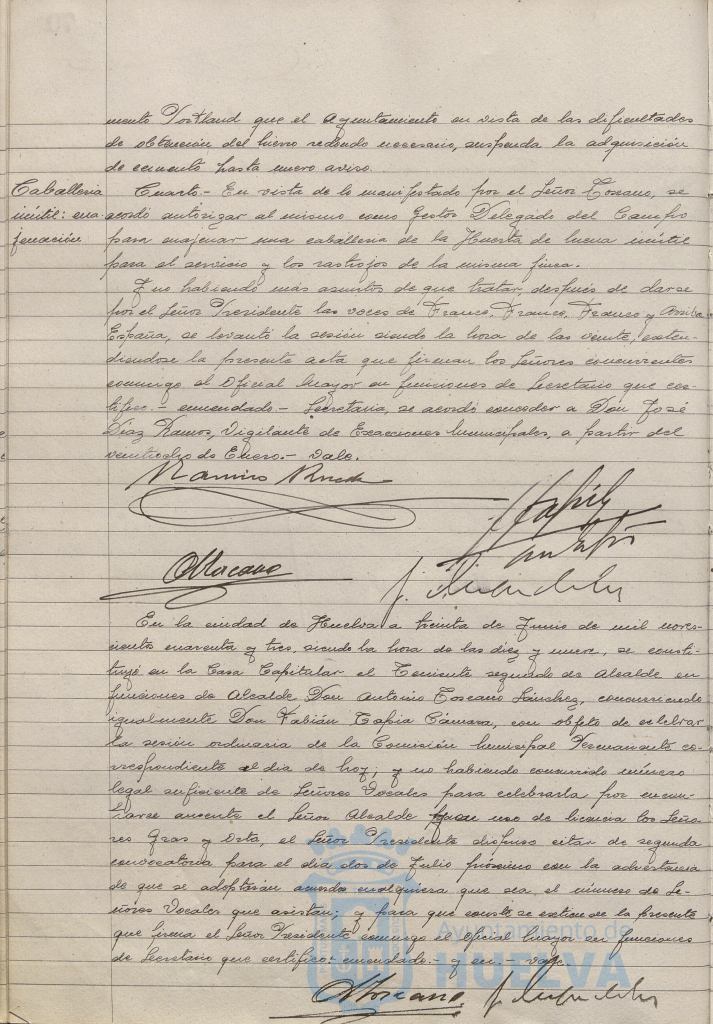 mento Portland que el Ayuntamiento en vista de las dificultades
de obtención del hierro redondo necesario, suspenda la adquisición
de cemento hasta nuevo aviso.
Caballeria
inútil: ena
jenación.
Cuarto.- En vista de lo manifestado por el Señor Toscano, se
acordó autorizar al mismo como Gestor Delegado del Campo
para enajenar una caballeria de la Huerta de Mena inútil
para el servicio y los rastrojos de la misma finca.
Y no habiendo más asuntos de que tratar, después de darse
por el Señor Presidente las voces de Franco, Franco, Franco y Arriba
España, se levantó la sesión siendo la hora de las veinte, exten-
diendose la presente acta que firman los Señores concurrentes
conmigo el Oficial Mayor en funciones de Secretario que cer-
tifico.- enmendado.- Secretaria, se acordó conceder a Don José
Díaz Ramos, Vigilante de Exacciones Municipales, a partir del
veintiocho de Enero.- Vale.
En la ciudad de Huelva a treinta de Junio de mil nove-
ciento cuarenta y tres, siendo la hora de las diez y nueve, se consti-
tuyó en la Casa Capitular el Teniente segundo de Alcalde en
funciones de Alcalde Don Antonio Toscano Sánchez, concurriendo
igualmente Don Fabián Tapia Cámara, con objeto de celebrar
la sesión ordinaria de la Comisión Municipal Permanente co-
rrespondiente al dia de hoy; y no habiendo concurrido número
legal suficiente de Señores Vocales para celebrarla por encon-
trarse ausente el Señor Alcalde uso de licencia los Seño-
res Gras y Orta, el Señor Presidente dispuso citar de segunda
convocatoria para el dia dos de Julio próximo con la advertencia
de que se adoptarán acuerdos cualquiera que sea el número de Se-
ñores Vocales que asistan; y para que conste se extiende la presente
que firma el Señor Presidente conmigo el Oficial Mayor en funciones
de Secretario que certifico.- enmendado.- y en.- vale
Toscano
Ayuntamiento de
HUELVA